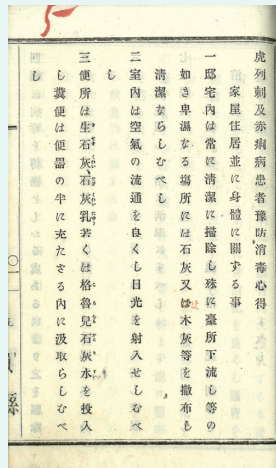 虎列剌及赤痢病患者豫防消毒心得
家屋住居並に身體に關する事
一邸宅內は常に清潔に掃除し殊に臺所下流し等の
如き卑濕なる塲所には石灰又は木灰等を撒布し
清潔ならしむべし
二室內は空氣の流通を良くし日光を射入せしむべ
し
三便所は生石灰、石灰乳若くは格魯兒石灰水を投入
し糞便は便器の半に充たざる內に汲取らしむべ
し
縣